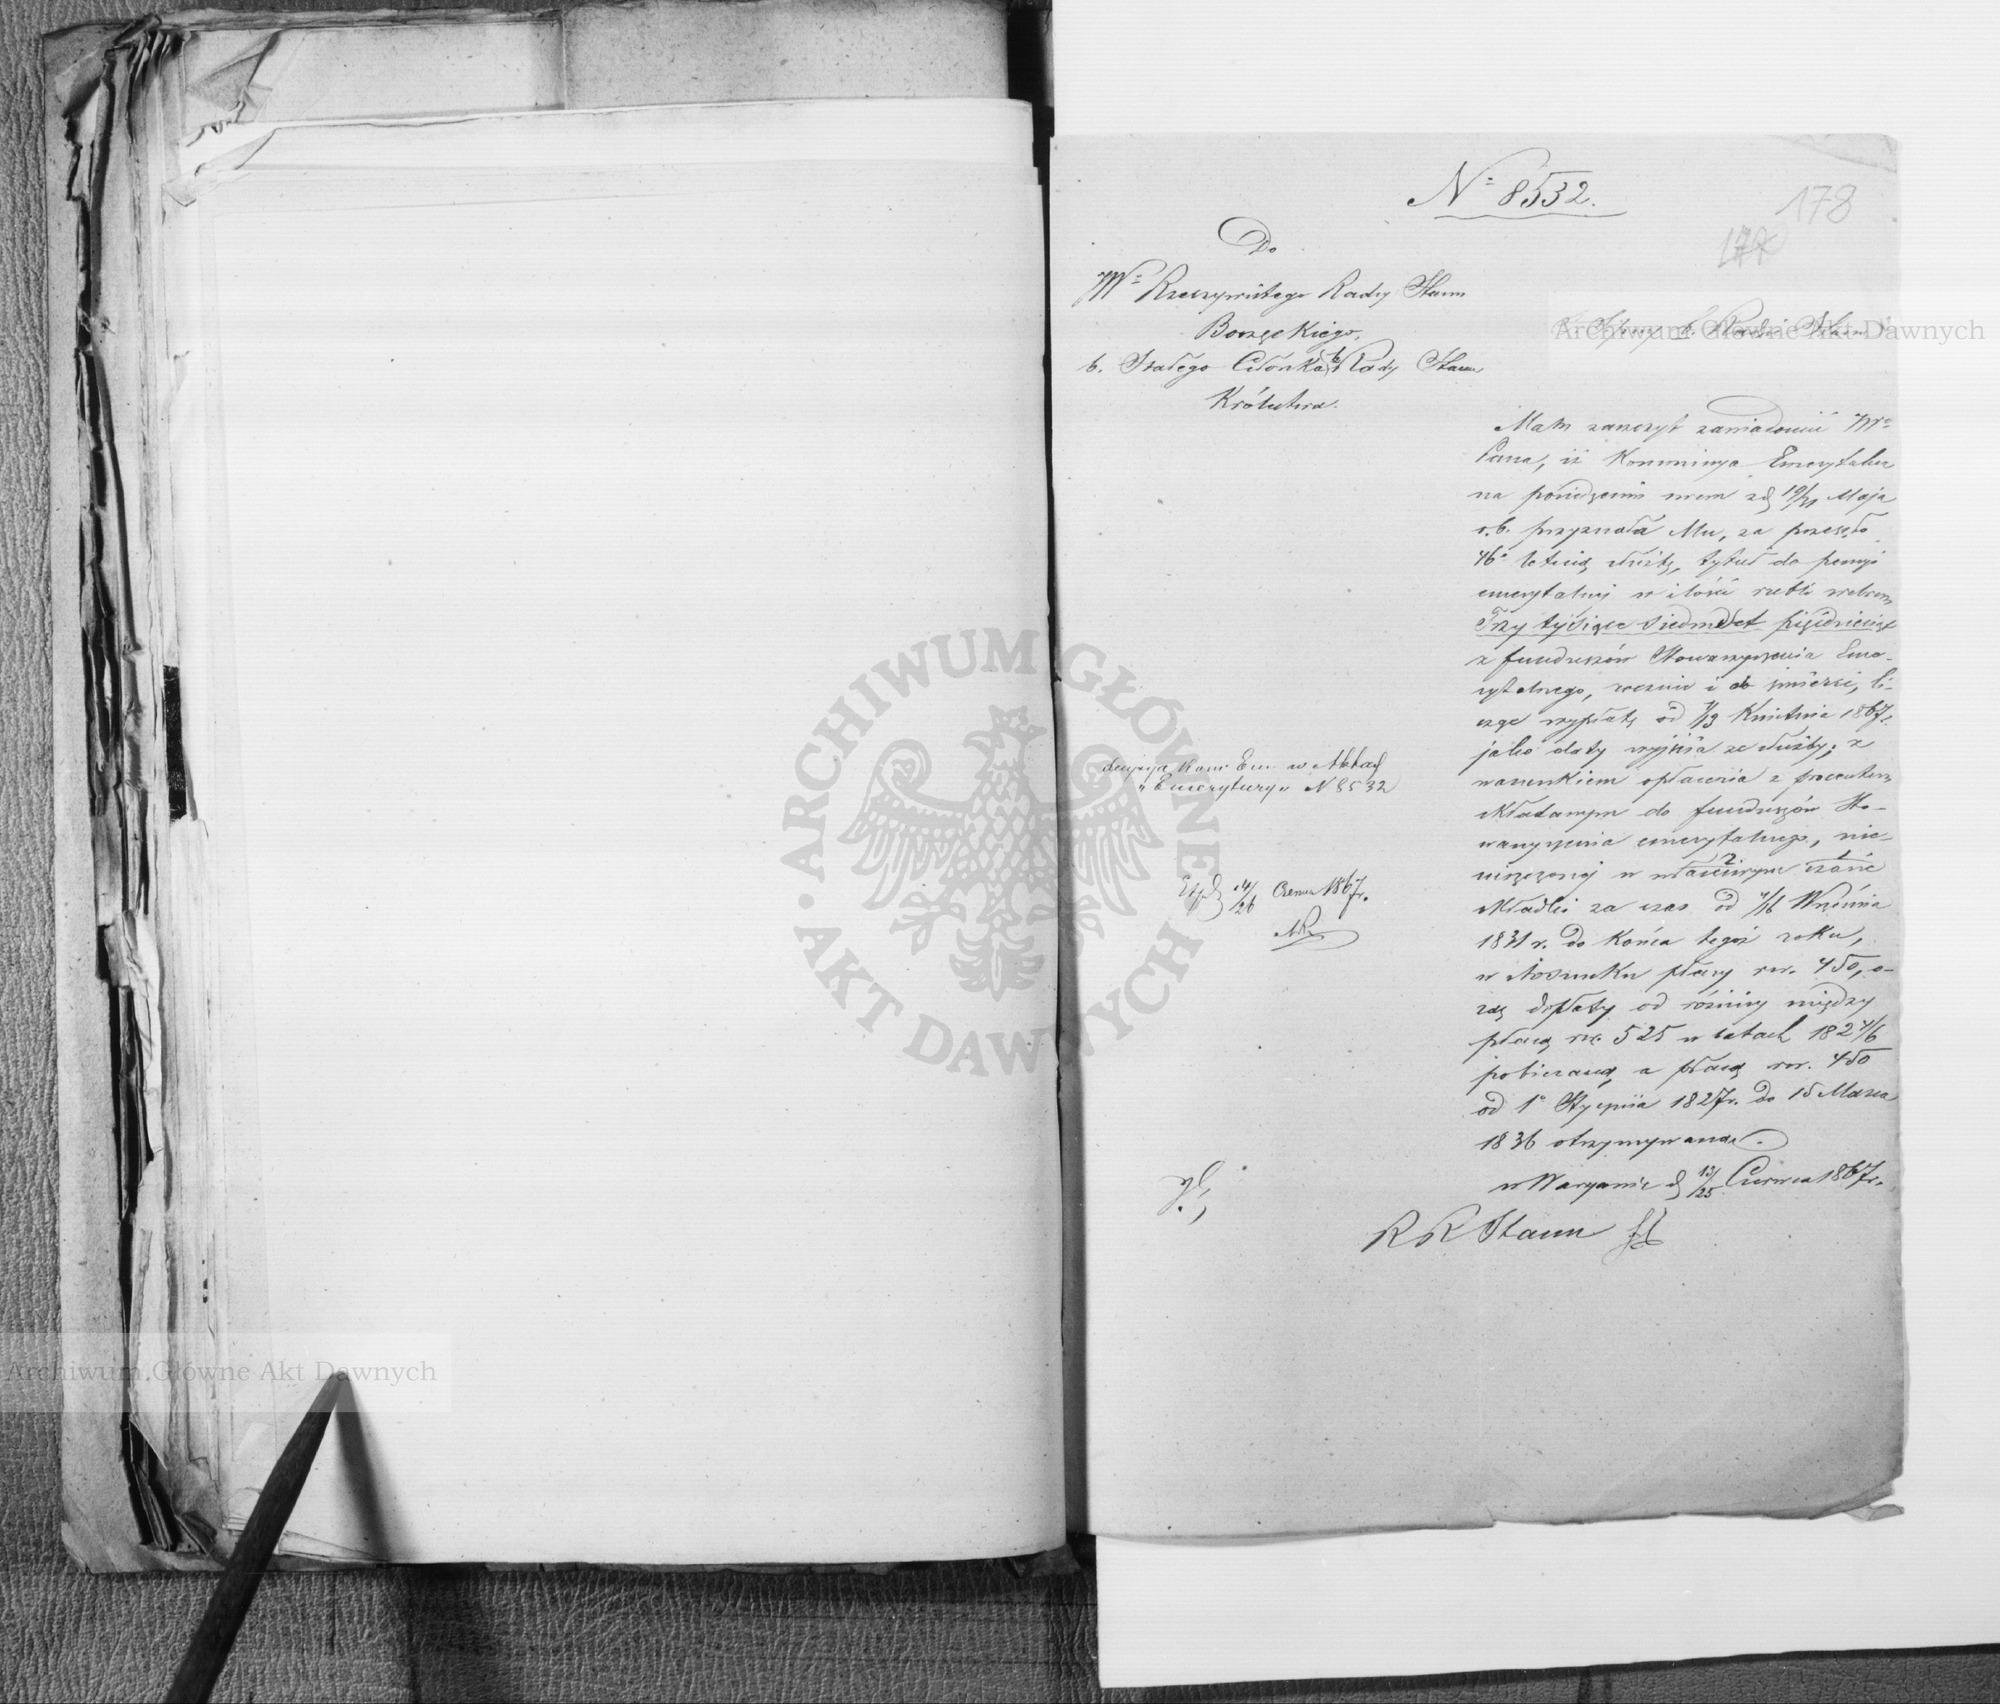 No 8532.
178
Do
JW= Rzeczywistego Radcy Stanu
Boręckiego,
b. Stałego Członka b. Rady Stanu
Królestwa.
Radca Stanu
Mam zaszczyt zawiadomić JW=
Pana, iż Kommissya Emerytalna
na posiedzeniu swem z d. 19/31 Maja
r. b. przyznała Mu, za przeszło
46o letnią służbę, tytuł do pensyi
emerytalnej w ilości rubli srebrem
Trzy tysiące siedmset pięćdziesiąt
z funduszów Stowarzyszenia Eme-
rytalnego, rocznie i do śmierci, li-
cząc wypłatę od 1/13 Kwietnia 1867 r.
jako daty wyjścia ze służby; z
warunkiem opłacenia z procentem
składanym do funduszów Sto-
warzyszenia emerytalnego, nie-
uiszczonej w właściwym czasie
składki za czas od 4/16 Września
1831 r. do końca tegoż roku,
w stosunku płacy rsr. 450, o-
raz dopłaty od różnicy między
płacą rsr. 525 w latach 1824/6
pobieraną, a płacą rsr. 450
od 1o Stycznia 1827 r. do 15 Marca
1836 otrzymywaną.
w Warszawie d. 13/25 Czerwca 1867 r.
R R Stanu
decyzya Kom. Em. w Aktach
"Emerytury" N 8532
Exp. d. 14/26 Czerwca 1867 r.
Archiwum Główne Akt Dawnych
Archiwum Główne Akt Dawnych
ARCHIWUM GŁÓWNE
AKT DAWNYCH